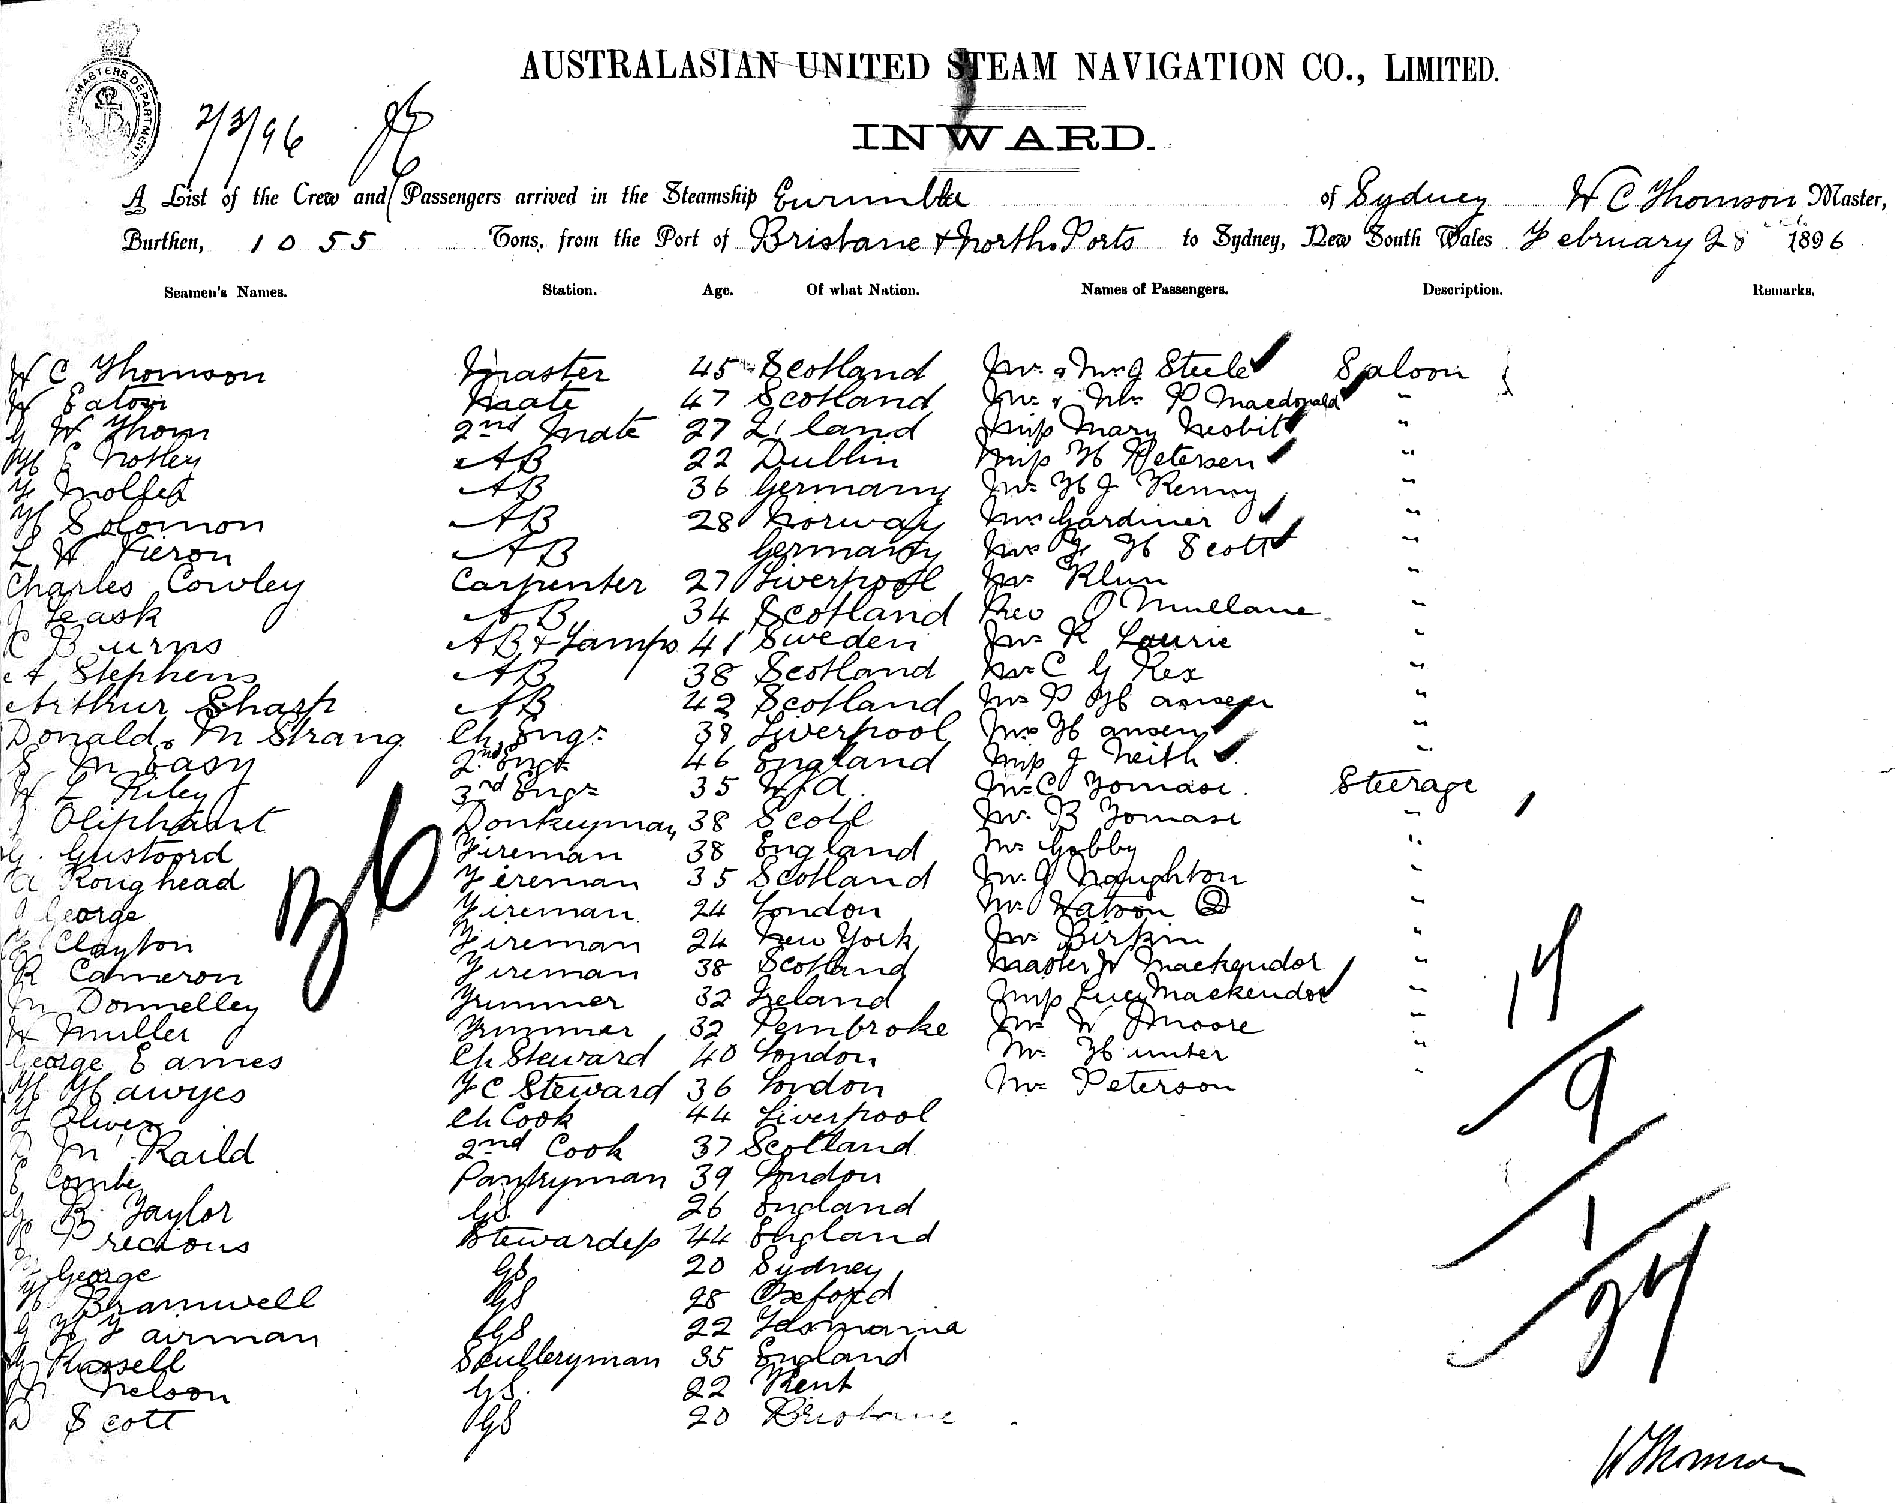 MASTERS DEPARTMENT
2/3/96
AUSTRALASIAN UNITED STEAM NAVIGATION CO., LIMITED.
INWARD.
A List of the Crew and Passengers arrived in the Steamship Eurimbla of Sydney W C Thomson Master,
Burthen, 1055 Tons, from the Port of Brisbane & North. Ports to Sydney, New South Wales February 28 1896
Seamen's Names. Station. Age. Of what Nation. Names of Passengers. Description. Remarks.
W C Thomson Master 45 Scotland Mr & Mrs J Steele Saloon
W Eaton Mate 47 Scotland Mr & Mrs P Macdonald "
W Thom 2nd Mate 27 land Miss Mary Nesbit "
Notley AB 22 Dublin Miss H Petersen "
AB 36 Germany Mr H J Kenny "
H Solomon AB 28 Norway Mrs Gardiner "
L W Fieron AB Germany H Scott "
Charles Cowley Carpenter 27 Liverpool Mr Klun "
J Leask AB 34 Scotland Rev O Mullane "
C Burns AB & Lamps 41 Sweden Mr R Laurie "
A Stephens AB 38 Scotland Mr C G Rex "
Arthur Sharp AB 42 Scotland Mr P Hansen "
Donald. M Strang Ch Engr 38 Liverpool Mrs Hansen "
S McEasy 2nd Engr 46 England Miss J Neith "
W L Riley 3rd Engr 35 Mr C Tomasi. Steerage
Oliphant Donkeyman 38 Scotl Mr B Tomasi "
G. Gustoord Fireman 38 England Mr Gobby "
A Roughead Fireman 35 Scotland Mr J Naughton "
J George Fireman 24 London Mr Watson 2 "
Clayton Fireman 24 New York Mr Birkin "
R Cameron Fireman 38 Scotland Master W Mackendor "
M Donnelley Trimmer 32 Ireland Miss Lucy Mackendor "
W Muller Trimmer 32 Pembroke Mr W Moore "
George Eames Ch Steward 40 London Mr Hunter "
H Hawyes F C Steward 36 London Mr Peterson "
Oliver Ch Cook 44 Liverpool
D Mc Raild 2nd Cook 37 Scotland
E Combe Pantryman 39 London
G R Taylor GS 26 England
Precious Stewardess 44 England
George GS 20 Sydney
H Bramwell GS 28 Oxford
G H Fairman GS 22 Tasmania
Russell Sculleryman 35 England
W Nelson GS. 22 Kent
D Scott GS 20 Brisbane
36
14
9
1
24
W Thomson